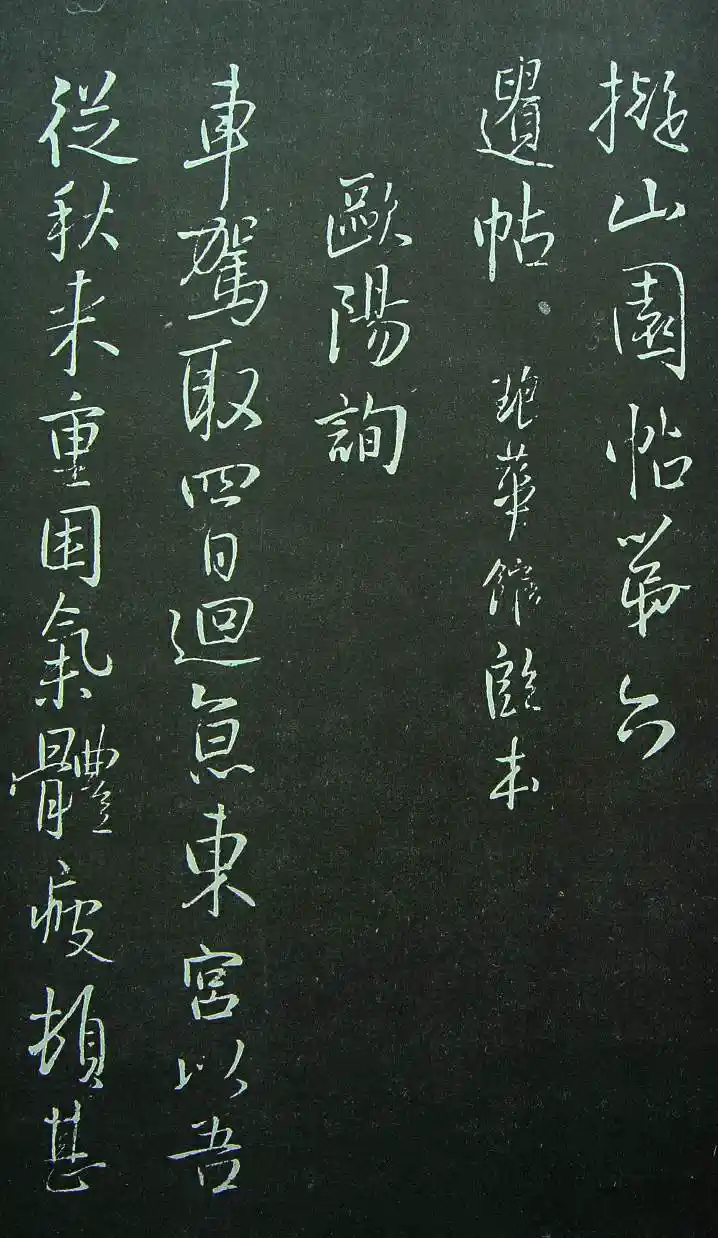 擬山園帖第六
遺帖 琅華館藏本
歐陽詢
車駕取四日迴息東宮以吾
從秋来重困氣體疲頓甚